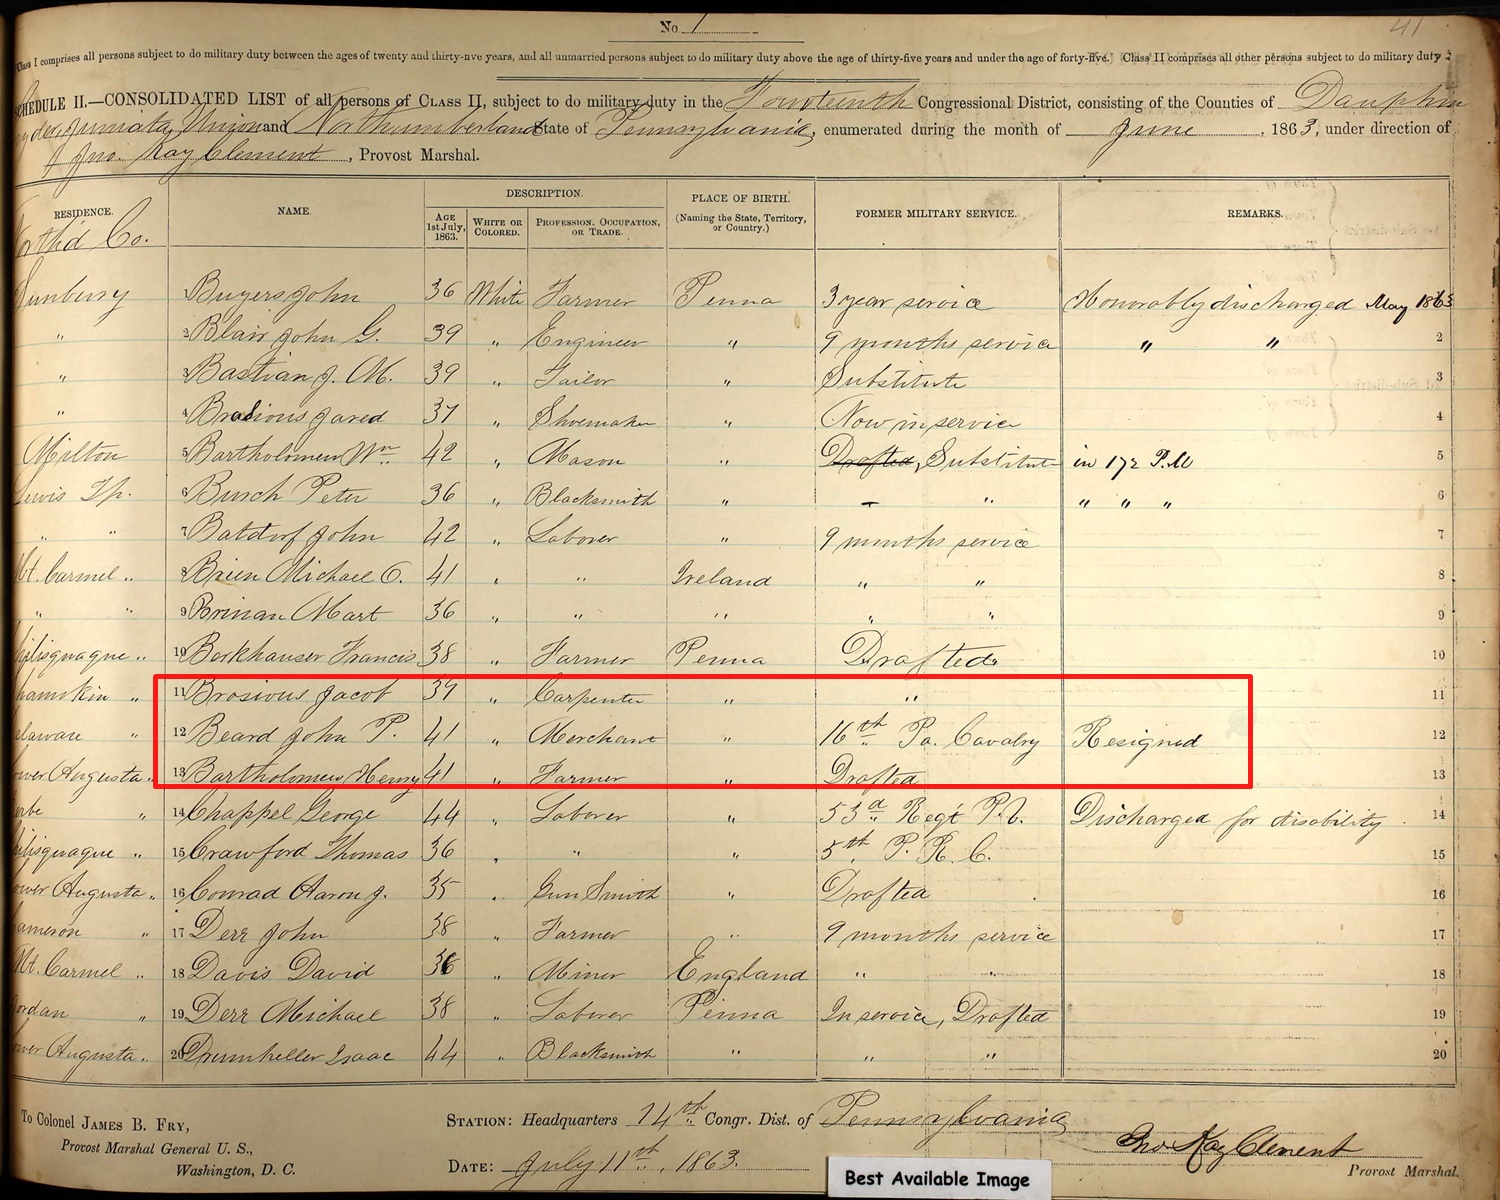 No 1
41
Class I comprises all persons subject to do military duty between the ages of twenty and thirty-five years, and all unmarried persons subject to do military duty above the age of thirty-five years and under the age of forty-five. Class II comprises all other persons subject to do military duty
SCHEDULE II.—CONSOLIDATED LIST of all persons of CLASS II, subject to do military duty in the Fourteenth Congressional District, consisting of the Counties of Dauphin
Juniata, Union and Northumberland State of Pennsylvania, enumerated during the month of June, 1863, under direction of
Jno. Kay Clement, Provost Marshal.
RESIDENCE. NAME. DESCRIPTION. PLACE OF BIRTH. FORMER MILITARY SERVICE. REMARKS.
AGE 1st July, 1863. WHITE OR COLORED. PROFESSION, OCCUPATION, OR TRADE. (Naming the State, Territory, or Country.)
North'd Co.
Sunbury 1 Buyers John 36 White Farmer Penna 3 year service Honorably discharged May 1863
" 2 Blair John G. 39 " Engineer " 9 months service " " 2
" 3 Bastian J. M. 39 " Tailor " Substitute 3
" 4 Brosious Jared 37 " Shoemaker " Now in service 4
Milton 5 Bartholomew Wm 42 " Mason " Drafted, Substitute in 172 P.M 5
Lewis Tp. 6 Burch Peter 36 " Blacksmith " – " " " " 6
" " 7 Batdorf John 42 " Laborer " 9 months service 7
Mt. Carmel " 8 Brien Michael O. 41 " " Ireland " " 8
" " 9 Brinan Mart 36 " " " " " 9
Chilisquaque " 10 Borkhauser Francis 38 " Farmer Penna Drafted 10
Shamokin " 11 Brosious Jacob 37 " Carpenter " " 11
Delaware " 12 Beard John P. 41 " Merchant " 16th Pa. Cavalry Resigned 12
Lower Augusta " 13 Bartholomew Henry 41 " Farmer " Drafted 13
Zerbe " 14 Chappel George 44 " Laborer " 53d Regt P.V. Discharged for disability 14
Chilisquaque " 15 Crawford Thomas 36 " " " 5th P. R. C. 15
Lower Augusta " 16 Conrad Aaron J. 35 " Gun Smith " Drafted 16
Cameron " 17 Derr John 38 " Farmer " 9 months service 17
Mt. Carmel " 18 Davis David 36 " Miner England " " 18
Jordan " 19 Derr Michael 38 " Laborer Penna In service, Drafted 19
Lower Augusta " 20 Drumheller Isaac 44 " Blacksmith " " " 20
To Colonel JAMES B. FRY,
Provost Marshal General U. S.,
Washington, D. C.
STATION: Headquarters 14th Congr. Dist. of Pennsylvania
DATE: July 11th, 1863.
Jno Kay Clement
Provost Marshal.
Best Available Image